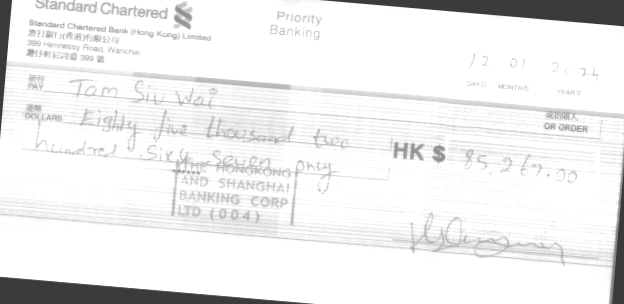 Standard Chartered
Priority
Banking
Standard Chartered Bank (Hong Kong) Limited
渣打銀行(香港)有限公司
399 Hennessy Road, Wanchai
灣仔軒尼詩道 399 號
12 01 2024
DAY日 MONTH月 YEAR年
祈付
PAY Tam Siu Wai
或指定人
OR ORDER
港幣
DOLLARS Eighty five thousand two
hundred sixty seven only
HK $ 85,267.00
THE HONGKONG
AND SHANGHAI
BANKING CORP
LTD (004)